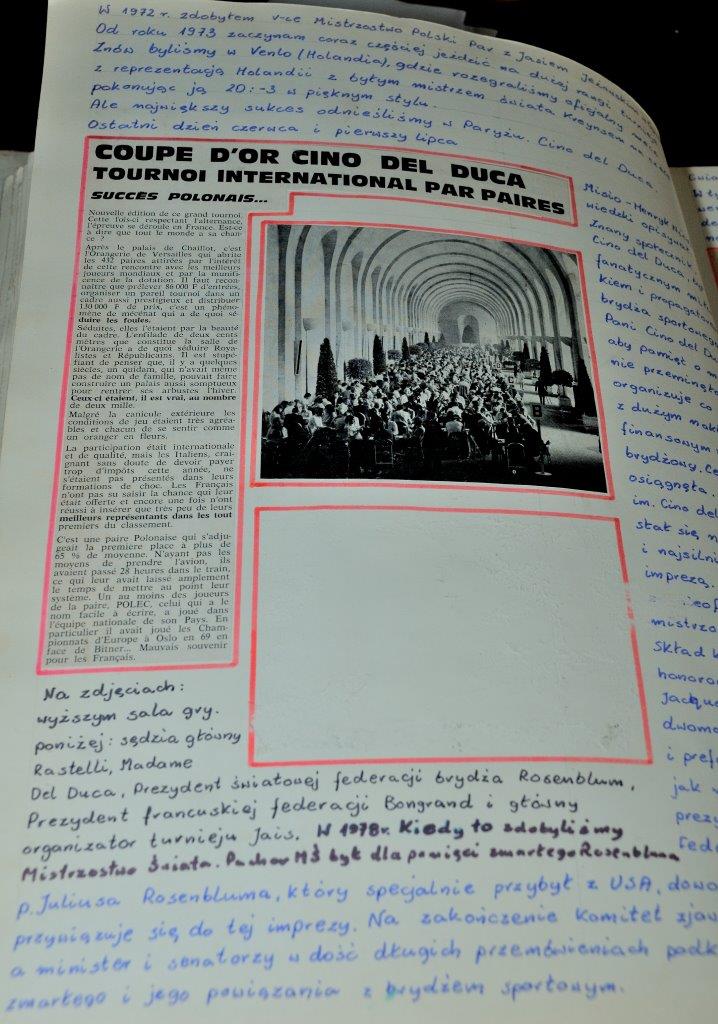 W 1972 r. zdobyłem v-ce Mistrzostwo Polski Par z Jasiem
Od roku 1973 zaczynam coraz częściej jeździć na dużej rangi
Znów byliśmy w Venlo (Holandia), gdzie rozegraliśmy oficjalny
z reprezentacją Holandii z byłym mistrzem świata Kreynsem na
pokonując ją 20:-3 w pięknym stylu.
Ale największy sukces odnieśliśmy w Paryżu. Cino del Duca.
Ostatni dzień czerwca i pierwszy lipca
COUPE D'OR CINO DEL DUCA
TOURNOI INTERNATIONAL PAR PAIRES
SUCCÈS POLONAIS...
Nouvelle édition de ce grand tournoi.
Cette fois-ci respectant l'alternance,
l'épreuve se déroule en France. Est-ce
à dire que tout le monde a sa chan-
ce ?
Après le palais de Chaillot, c'est
l'Orangerie de Versailles qui abrite
les 432 paires attirées par l'intérêt
de cette rencontre avec les meilleurs
joueurs mondiaux et par la munifi-
cence de la dotation. Il faut recon-
naître que prélever 86 000 F d'entrées,
organiser un pareil tournoi dans un
cadre aussi prestigieux et distribuer
130 000 F de prix, c'est un phéno-
mène de mécénat qui a de quoi sé-
duire les foules.
Séduites, elles l'étaient par la beauté
du cadre. L'enfilade de deux cents
mètres que constitue la salle de
l'Orangerie a de quoi séduire Roya-
listes et Républicains. Il est stupé-
fiant de penser que, il y a quelques
siècles, un quidam, qui n'avait même
pas de nom de famille, pouvait faire
construire un palais aussi somptueux
pour rentrer ses arbustes l'hiver.
Ceux-ci étaient, il est vrai, au nombre
de deux mille.
Malgré la canicule extérieure les
conditions de jeu étaient très agréa-
bles et chacun de se sentir comme
un oranger en fleurs.
La participation était internationale
et de qualité, mais les Italiens, crai-
gnant sans doute de devoir payer
trop d'impôts cette année, ne
s'étaient pas présentés dans leurs
formations de choc. Les Français
n'ont pas su saisir la chance qui leur
était offerte et encore une fois n'ont
réussi à insérer que très peu de leurs
meilleurs représentants dans les tout
premiers du classement.
C'est une paire Polonaise qui s'adju-
geait la première place à plus de
65 % de moyenne. N'ayant pas les
moyens de prendre l'avion, ils
avaient passé 28 heures dans le train,
ce qui leur avait laissé amplement
le temps de mettre au point leur
système. Un au moins des joueurs
de la paire, POLEC, celui qui a le
nom facile à écrire, a joué dans
l'équipe nationale de son Pays. En
particulier il avait joué les Cham-
pionnats d'Europe à Oslo en 69 en
face de Bitner... Mauvais souvenir
pour les Français.
C
B
Misio-Henryk
wiedzki opisywał
Znany społecznik
Cino del Duca, by
fanatycznym mi
kiem i propagator
brydża sportowego
Pani Cino del Du
aby pamięt o m
nie przeminęła
organizuje co
z dużym nak
finansowym
brydżowy. Ce
osiągnęta.
im. Cino del
stał się n
i najsilni
imprezą.
mistrzo
Skład k
honoro
Jacque
dwoma
i pref
jak
prezy
Fede
Na zdjęciach:
wyższym sala gry.
poniżej: sędzia główny
Rastelli, Madame
Del Duca, Prezydent światowej federacji brydża Rosenblum,
Prezydent francuskiej federacji Bongrand i główny
organizator turnieju Jais. W 1978r. Kiedy to zdobyliśmy
Mistrzostwo Świata. Puchar MŚ był dla pamięci zmarłego Rosenbluma
p. Juliusa Rosenbluma, który specjalnie przybył z USA, dowo
przywiązuje się do tej imprezy. Na zakończenie komitet zjaw
a minister i senatorzy w dość długich przemówieniach podk
zmarłego i jego powiązania z brydżem sportowym.